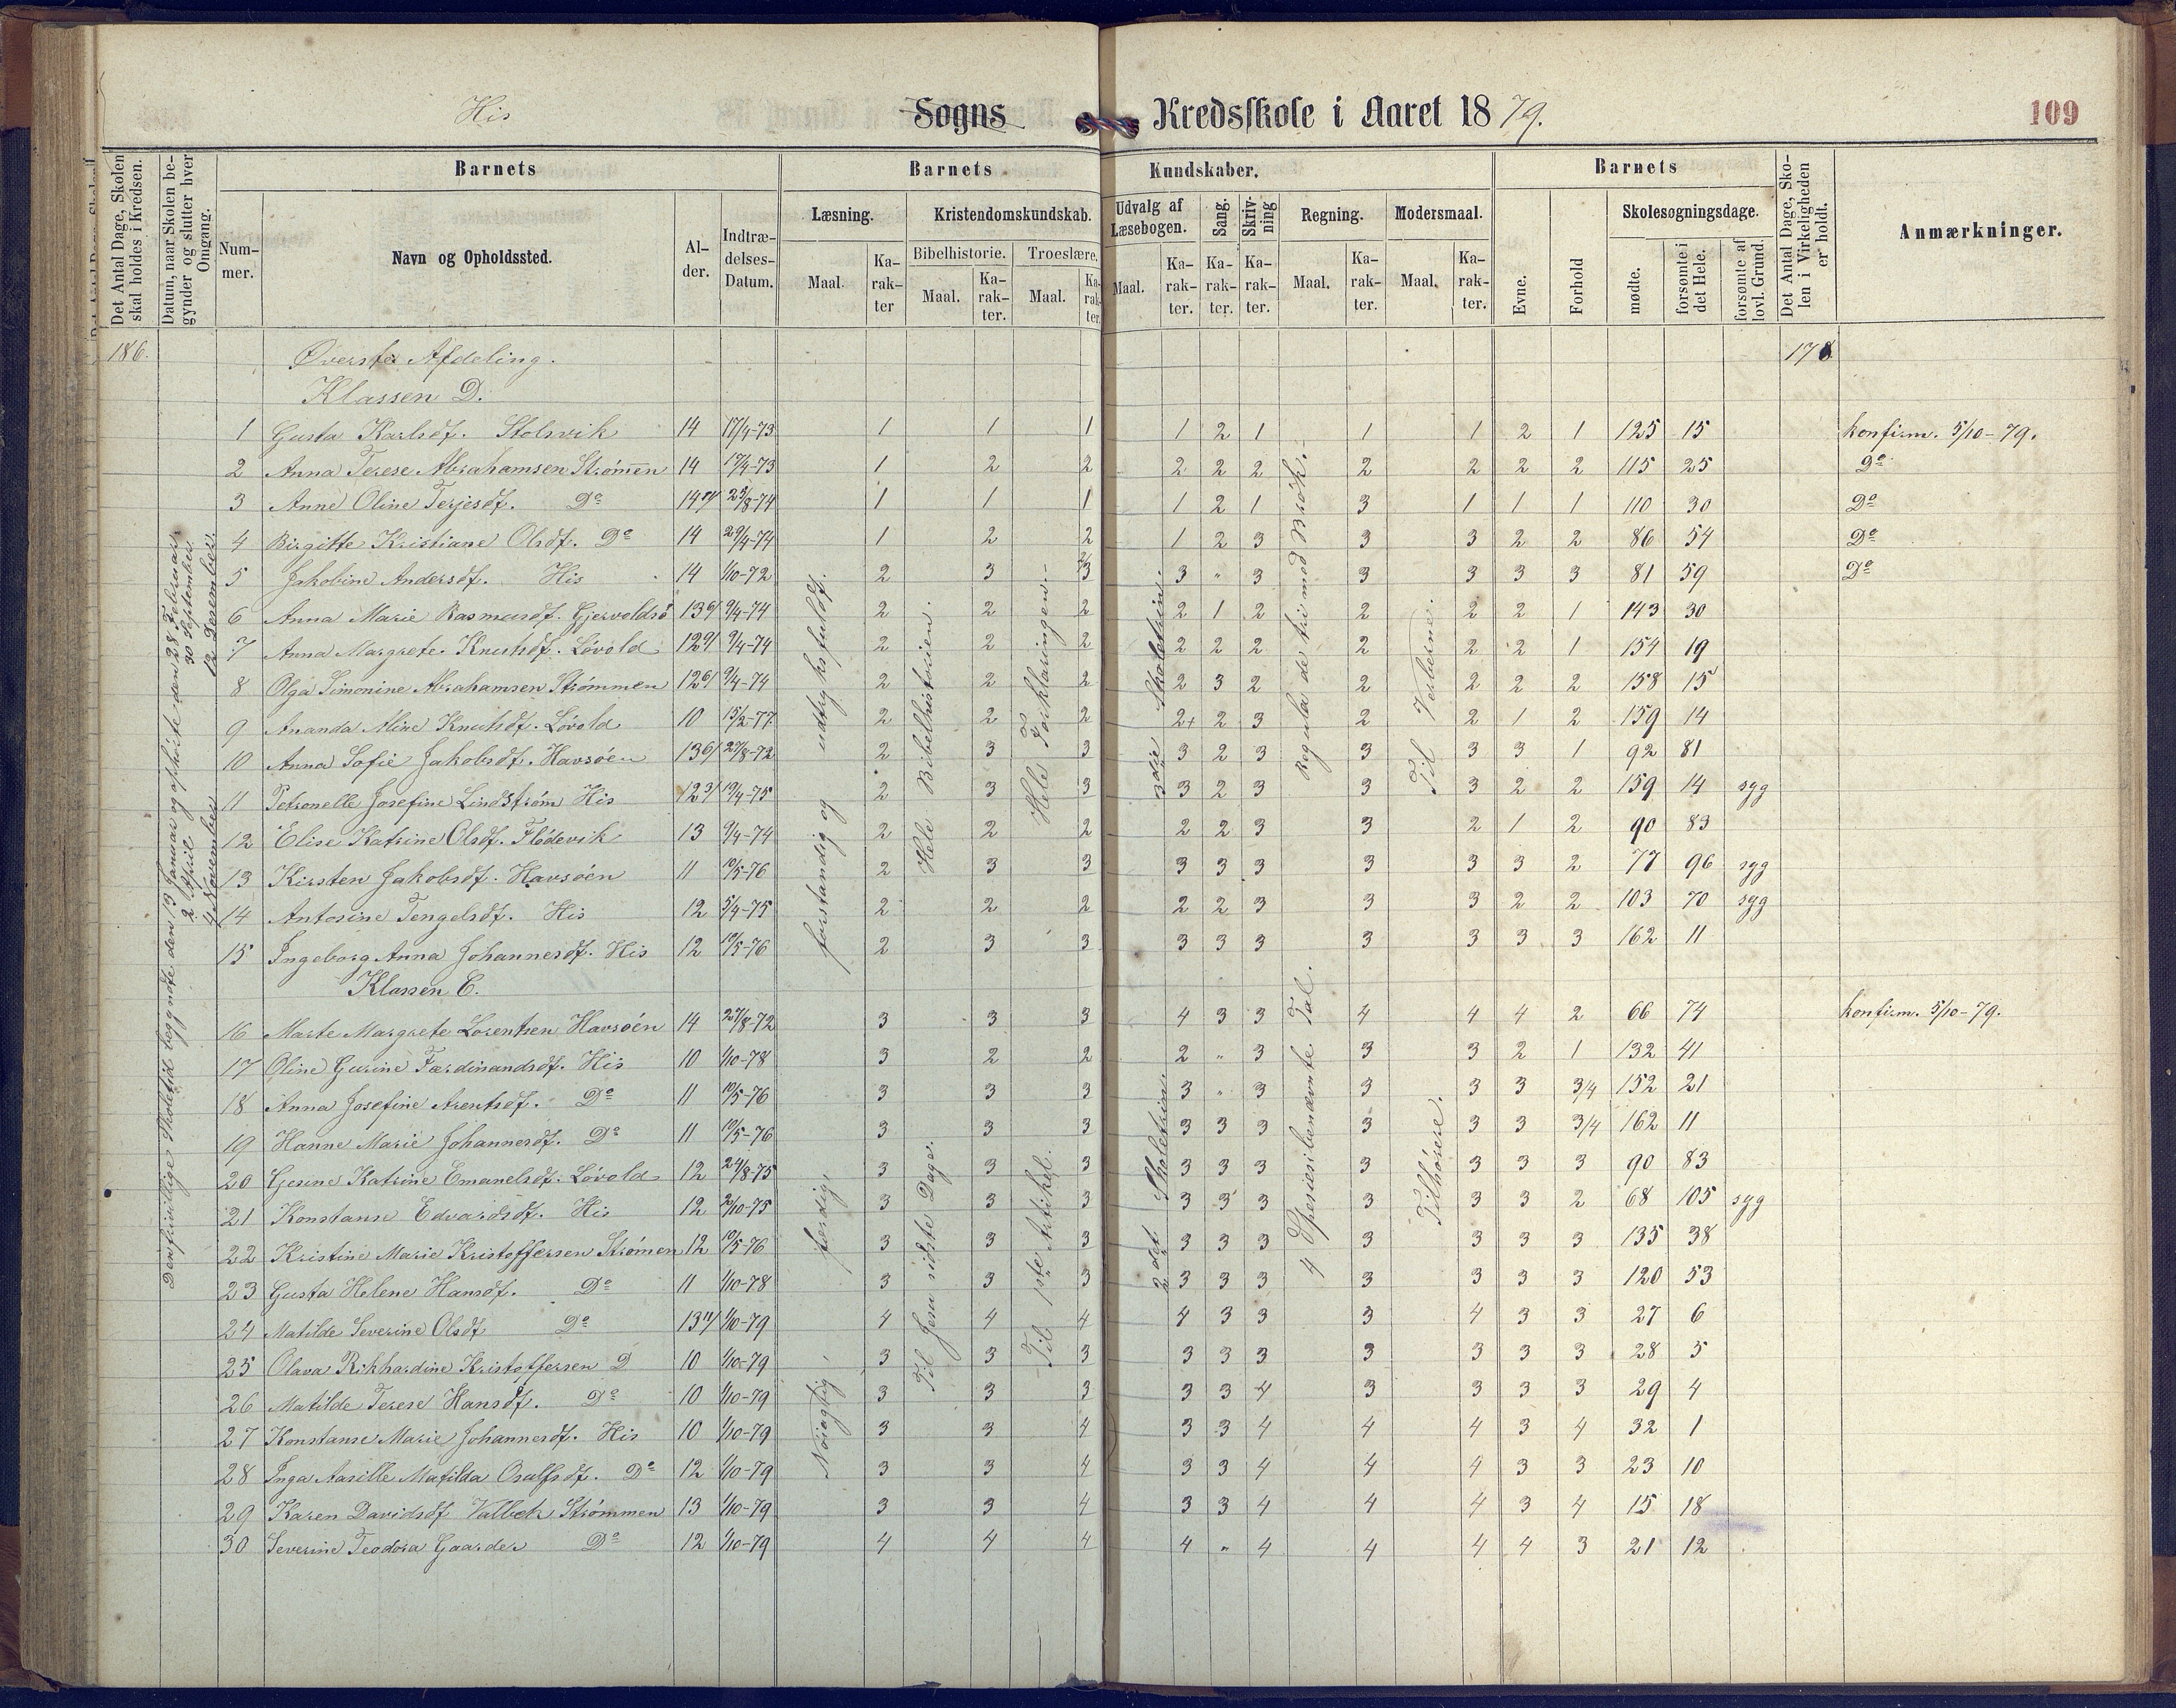 His Sogns Kredsskole i Aaret 1879. 109
Det Antal Dage, Skolen skal holdes i Kredsen.
Datum, naar Skolen begynder og slutter hver Omgang.
Barnets
Nummer.
Navn og Opholdssted.
Alder.
Indtrædelses-Datum.
Barnets Kundskaber.
Læsning.
Maal.
Karakter
Kristendomskundskab.
Bibelhistorie.
Maal.
Karakter.
Troeslære.
Maal.
Karakter.
Udvalg af Læsebogen.
Maal.
Karakter.
Sang.
Karakter.
Skrivning
Karakter.
Regning.
Maal.
Karakter.
Modersmaal.
Maal.
Karakter.
Barnets
Evne.
Forhold
Skolesøgningsdage.
mødte.
forsømte i det Hele.
forsømte af lovl. Grund.
Det Antal Dage, Skolen i Virkeligheden er holdt.
Anmærkninger.
186. Øverste Afdeling. 178
Klassen D.
1 Gusta Karlsdf. Stolsvik 14 17/4-73 1 1 1 1 2 1 1 1 2 1 125 15 konfirm. 5/10-79.
2 Anna Terese Abrahamsen Strømen 14 17/4-73 1 2 2 2 2 2 2 2 2 2 115 25 Do
3 Anne Oline Terjesdf. Do 14 25/8-74 1 1 1 1 2 1 3 1 1 1 110 30 Do
4 Birgitte Kristiane Olsdf. Do 14 29/4-74 1 2 2 1 2 3 3 3 2 2 86 54 Do
5 Jakobine Andersdf. His 14 1/10-72 2 3 2/3 3 " 3 3 3 3 3 81 59 Do
6 Anna Marie Rasmusdf. Gjervoldsø 13 6/ 9/4-74 2 2 2 2 1 2 2 2 2 1 143 30
7 Anna Margrete Knutsdf. Løvold 12 9/ 9/4-74 2 2 2 2 2 2 2 2 2 1 154 19
8 Olga Simonine Abrahamsen Strømmen 12 6/ 9/4-74 2 2 2 2 3 2 2 2 2 2 158 15
9 Ananda Aline Knutsdf. Løvold 10 15/2-77 2 2 2 2+ 2 3 2 2 1 2 159 14
10 Anna Sofie Jakobsdf. Havsøen 13 6/ 27/8-72 2 3 3 3 2 3 3 3 3 1 92 81
11 Petronelle Josefine Lindstrøm His 12 3/ 19/4-75 2 3 3 3 2 3 3 3 2 2 159 14 syg
12 Elise Katrine Olsdf. Flødevik 13 9/4-74 2 2 2 2 2 3 3 2 1 2 90 83
13 Kirsten Jakobsdf. Havsøen 11 10/5-76 2 3 3 3 3 3 3 3 3 2 77 96 syg
14 Antosine Tengelsdf. His 12 5/4-75 2 2 2 2 2 3 3 3 2 2 103 70 syg
15 Ingeborg Anna Johannesdf. His 12 10/5-76 2 3 3 3 3 3 3 3 3 3 162 11
Klassen C.
16 Marte Margrete Lorentsen Havsøen 14 27/8-72 3 3 3 4 3 3 4 4 4 2 66 74 konfirm. 5/10-79.
17 Oline Gurine Færdinandsdf. His 10 1/10-78 3 2 2 2 " 3 3 3 2 1 132 41
18 Anna Josefine Arentsdf. Do 11 10/5-76 3 3 3 3 " 3 3 3 3 3/4 152 21
19 Hanne Marie Johannesdf. Do 11 10/5-76 3 3 3 3 3 3 3 3 3 3/4 162 11
20 Gesine Katrine Emanelsdf. Løvold 12 24/8-75 3 3 3 3 3 3 3 3 3 3 90 83
21 Konstanse Edvardsdf. His 12 2/10-75 3 3 3 3 3 3 3 3 3 2 68 105 syg
22 Kristine Marie Kristoffersen Strømen 12 10/5-76 3 3 3 3 3 3 3 3 3 3 135 38
23 Gusta Helene Hansdf. Do 11 1/10-78 3 3 3 3 3 3 3 3 3 3 120 53
24 Matilde Severine Olsdf Do 13 11/ 1/10-79 4 4 4 4 3 3 3 4 3 3 27 6
25 Olava Rikhardine Kristoffersen D 10 1/10-79 3 3 3 3 3 3 3 3 3 3 28 5
26 Matilde Terese Hansdf. Do 10 1/10-79 3 3 3 3 3 4 3 3 3 3 29 4
27 Konstanse Marie Johannesdf. His 10 1/10-79 3 3 4 3 3 4 4 4 3 4 32 1
28 Inga Aasille Matilda Osulfsdf. Do 12 1/10-79 3 3 4 3 3 4 4 4 3 3 23 10
29 Karen Davidsdf Valbek Strømmen 13 1/10-79 3 3 4 3 3 4 4 4 3 4 15 18
30 Severine Teodora Gaarder Do 12 1/10-79 4 4 4 4 " 4 4 4 4 3 21 12
Den frivillige Skoletid begyndte den 13 Januar og ophørte den 28 Februar
2 April og 30 September
4 November 12 Desember.
forstandig og udtryksfuldt.
Hele Bibelhistorien.
Hele Forklaringen.
3die Skoletrin.
Regula de tri med Brøk.
Til Verberne.
Nøiagtig, ferdig,
Til Jesu sidste Dage.
Til 1ste Artikel.
2det Skoletrin.
4 Spesies i benævnte Tal.
Tilhørere.